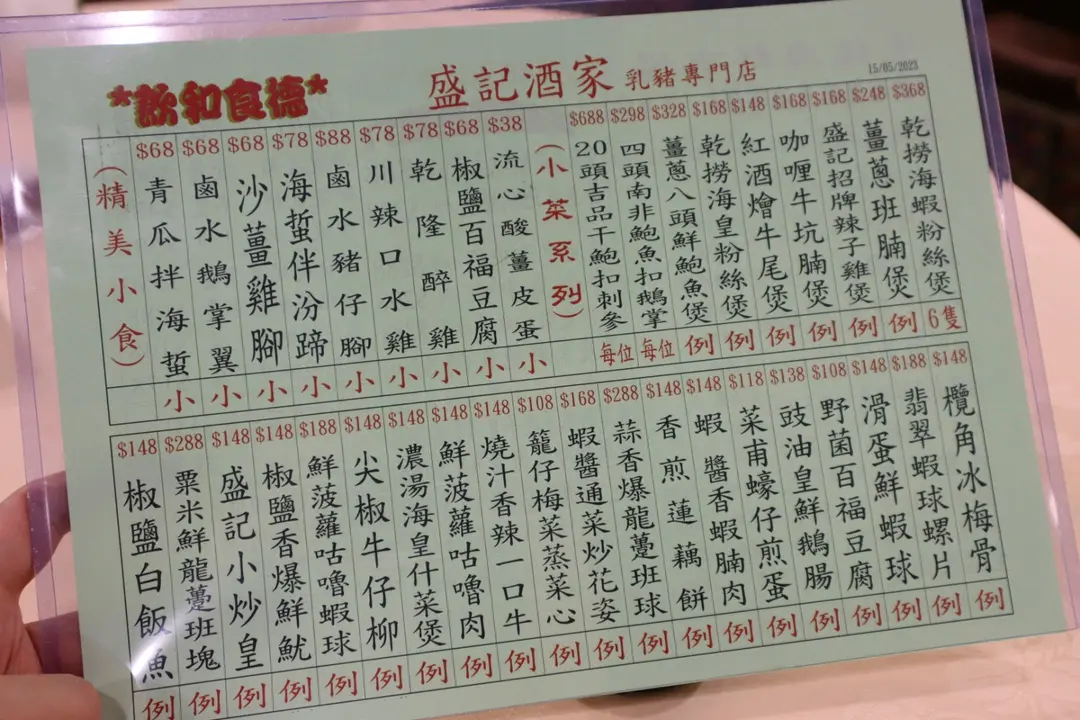 *飲和食德*
盛記酒家 乳豬專門店
15/05/2023
(精美小食)
$68
青瓜拌海蜇
小
$68
鹵水鵝掌翼
小
$68
沙薑雞腳
小
$78
海蜇伴汾蹄
小
$88
鹵水豬仔腳
小
$78
川辣口水雞
小
$78
乾隆醉雞
小
$68
椒鹽百福豆腐
小
$38
流心酸薑皮蛋
小
(小菜系列)
$688
20頭吉品干鮑扣刺參
每位
$298
四頭南非鮑魚扣鵝掌
每位
$328
薑蔥八頭鮮鮑魚煲
例
$168
乾撈海皇粉絲煲
例
$148
紅酒燴牛尾煲
例
$168
咖喱牛坑腩煲
例
$168
盛記招牌辣子雞煲
例
$248
薑蔥班腩煲
例
$368
乾撈海蝦粉絲煲
6隻
$148
椒鹽白飯魚
例
$288
粟米鮮龍躉班塊
例
$148
盛記小炒皇
例
$148
椒鹽香爆鮮魷
例
$188
鮮菠蘿咕嚕蝦球
例
$148
尖椒牛仔柳
例
$148
濃湯海皇什菜煲
例
$148
鮮菠蘿咕嚕肉
例
$148
燒汁香辣一口牛
例
$108
籠仔梅菜蒸菜心
例
$168
蝦醬通菜炒花姿
例
$288
蒜香爆龍躉班球
例
$148
香煎蓮藕餅
例
$148
蝦醬香蝦腩肉
例
$118
菜甫蠔仔煎蛋
例
$138
豉油皇鮮鵝腸
例
$108
野菌百福豆腐
例
$148
滑蛋鮮蝦球
例
$188
翡翠蝦球螺片
例
$148
欖角冰梅骨
例